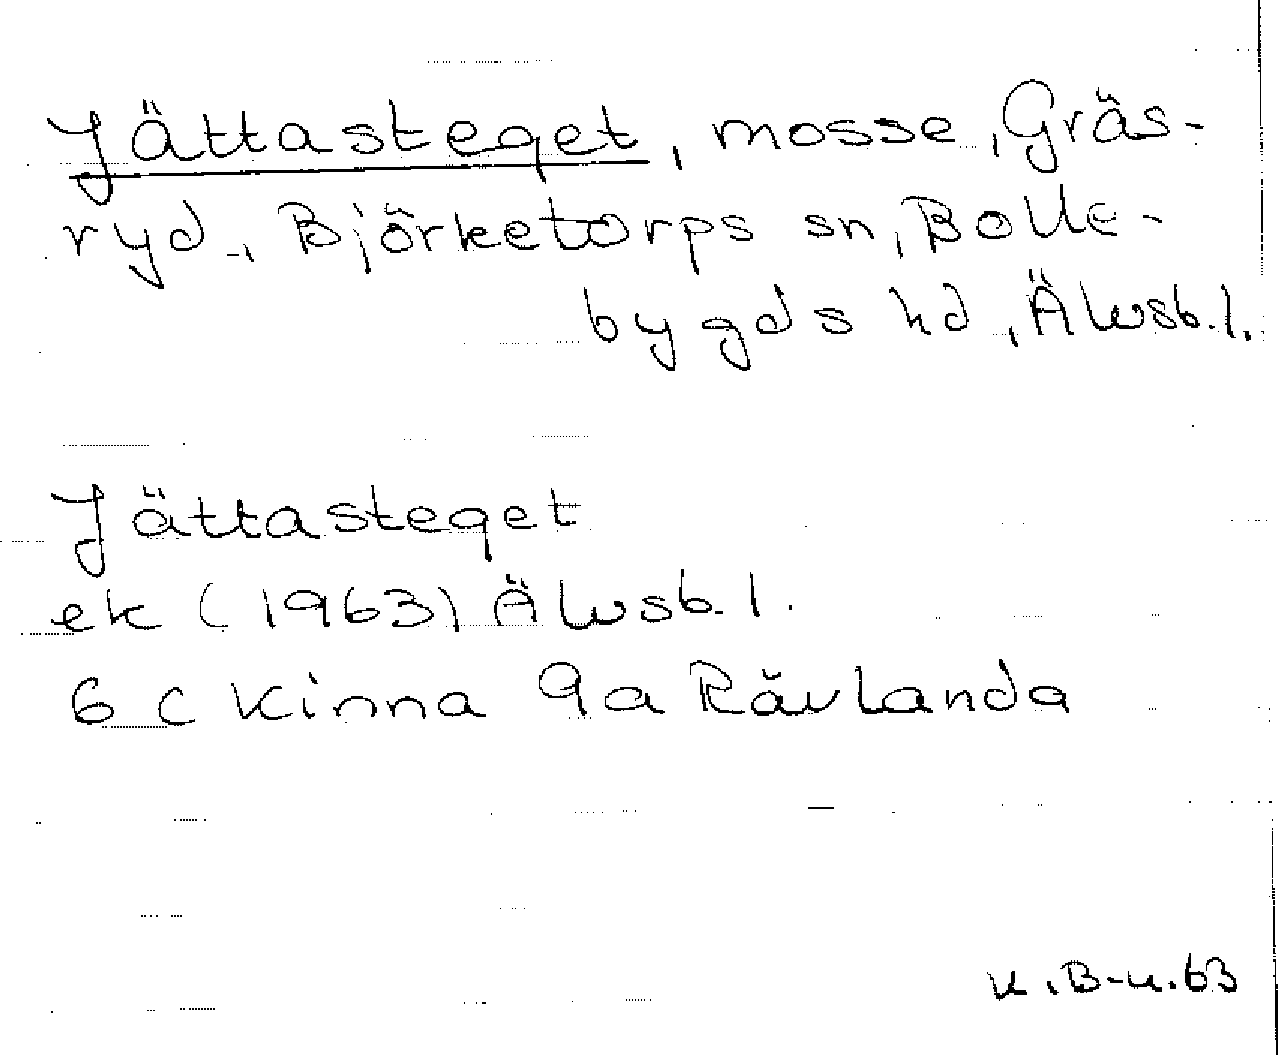 Jättasteget, mosse, Gräs-
ryd, Björketorps sn, Bolle-
bygds hd, Älvsb.l.
Jättasteget
ek (1963) Älvsb.l.
6 C Kinna 9a Rävlanda
K.B-K.63